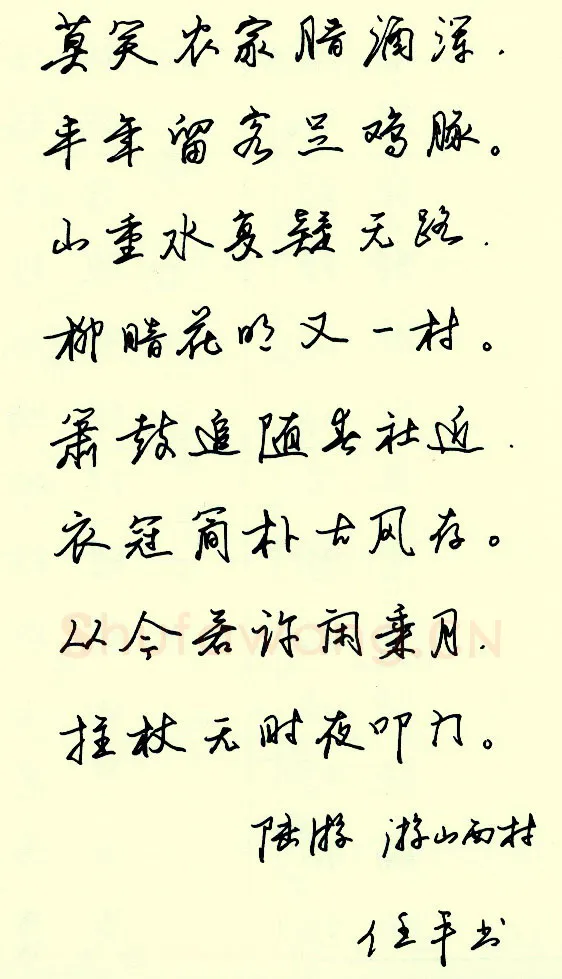 莫笑农家腊酒浑.
丰年留客足鸡豚。
山重水复疑无路.
柳暗花明又一村。
箫鼓追随春社近.
衣冠简朴古风存。
从今若许闲乘月.
拄杖无时夜叩门。
陆游 游山西村
任平书
Shufawang.CN